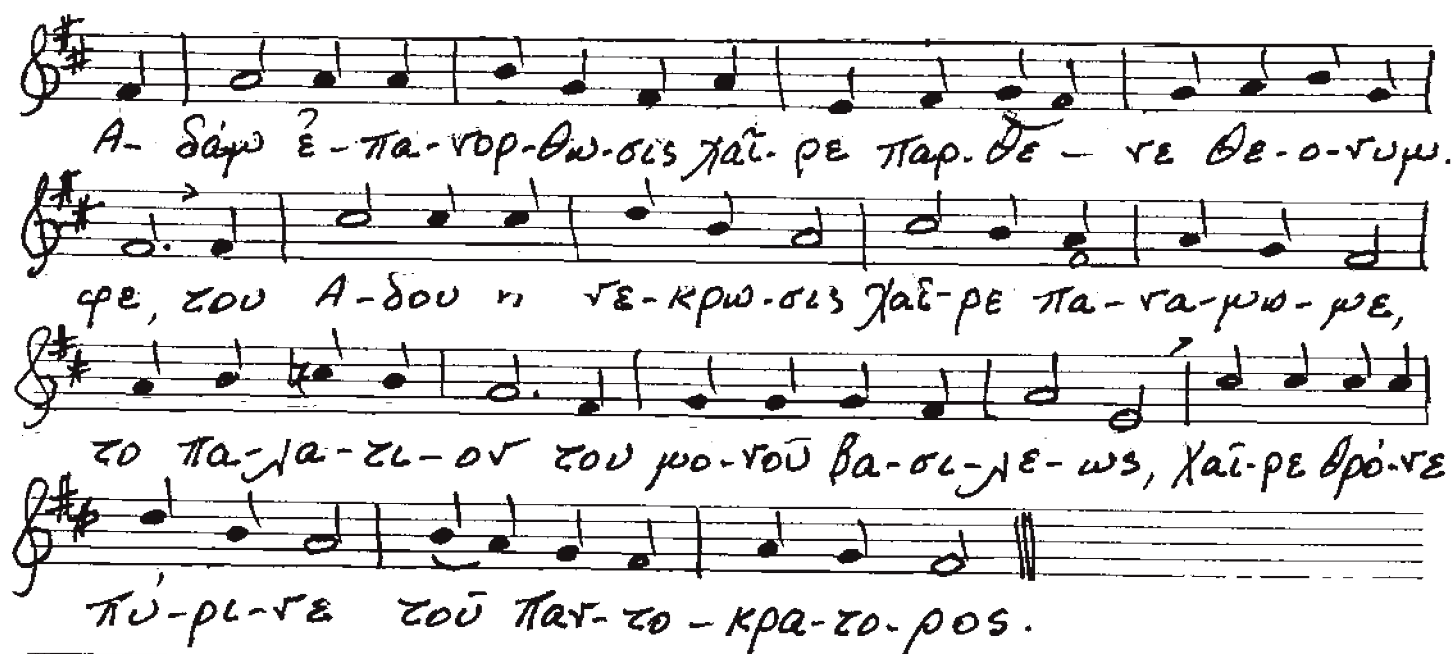 Α- δάμ ἐ-πα-νορ-θω-σις χαῖ-ρε παρ-θε - νε θε-ο-νυμ.
φε, του Α-δου η νε-κρω-σις χαῖ-ρε πα-να-μω-με,
το πα-λα-τι-ον του μο-νοῦ βα-σι-λε-ως, χαῖ-ρε θρό-νε
πύ-ρι-νε τοῦ παν-το-κρα-το-ρος.